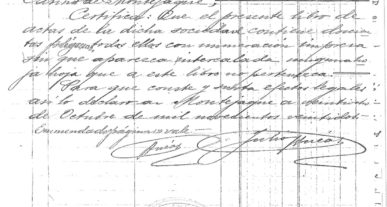 de Montejaque,
Certifico: Que el presente libro de
actas de la dicha sociedad contiene doscien
tas páginas todas ellas con numeración impresa
sin que aparezca intercalada ninguna
hoja que a este libro no pertenezca.
Para que conste y surta efectos legales
así lo declaro en Montejaque a veintiocho
de Octubre de mil novecientos veintidós.
Enmendado página vale
Julio